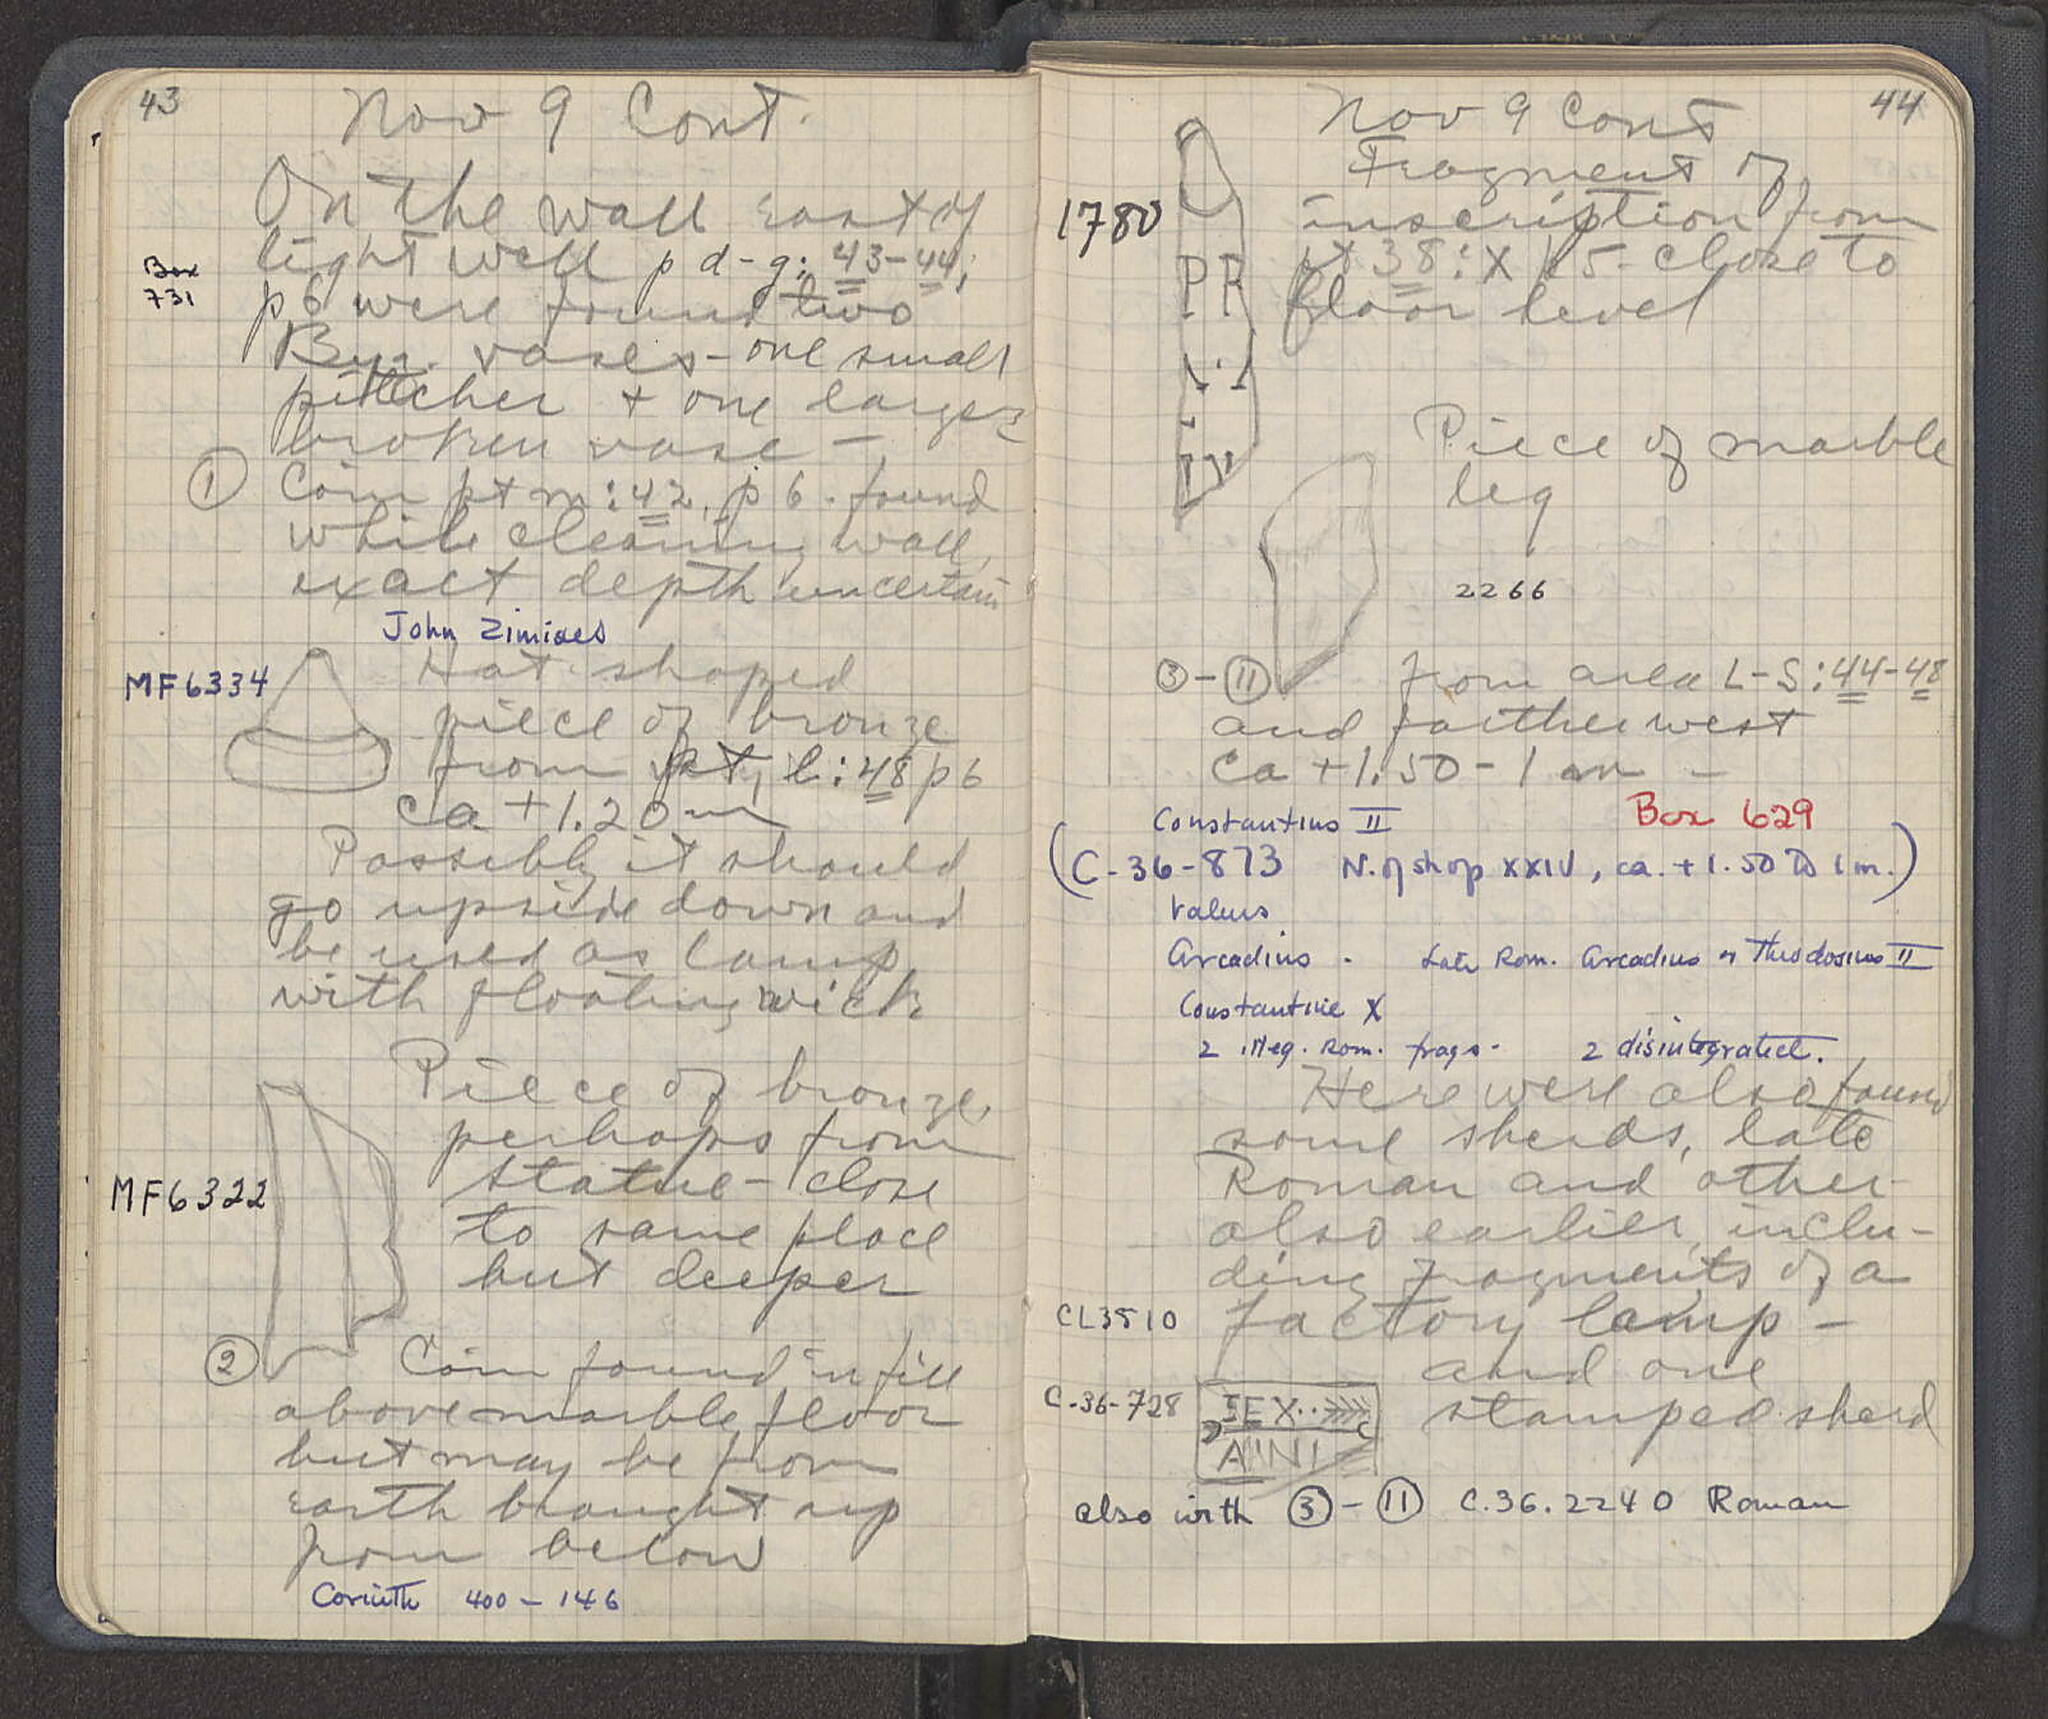 43
Nov 9 Cont.
On the wall east of
light well p d-g: 43-44;
Box
731
p 6 were found two
Byz. vases - one small
pittcher + one larger
broken vase -
① Coin pt m:42, p 6. found
while cleaning wall,
exact depth uncertain
John Zimisces
MF6334
Hat shaped
piece of bronze
from pt, l:48 p 6
ca +1.20 m
Possibly it should
go upside down and
be used as lamp
with floating wick
Piece of bronze,
perhaps from
MF6322
statue - close
to same place
but deeper
② Coin found in fill
above marble floor
but may be from
earth brought up
from below
Corinth 400 - 146
44
Nov 9 Cont
Fragment of
1780
inscription from
pt 38:X p 5 - close to
floor level
PR
Piece of marble
leg
2266
③-⑪ from area L-S:44-48
and farther west
ca +1.50 - 1 m -
Constantius II
Box 629
(C-36-873 N. of shop XXIV, ca. +1.50 to 1 m.)
Valens
Arcadius - Late Rom. Arcadius or Theodosius II
Constantine X
2 illeg. Rom. frags - 2 disintegrated.
Here were also found
some sherds, late
Roman and other -
also earlier, inclu-
ding fragments of a
CL3510
factory lamp -
and one
C-36-728
SEX
stamped sherd
ANNI
also with ③-⑪ C.36.2240 Roman